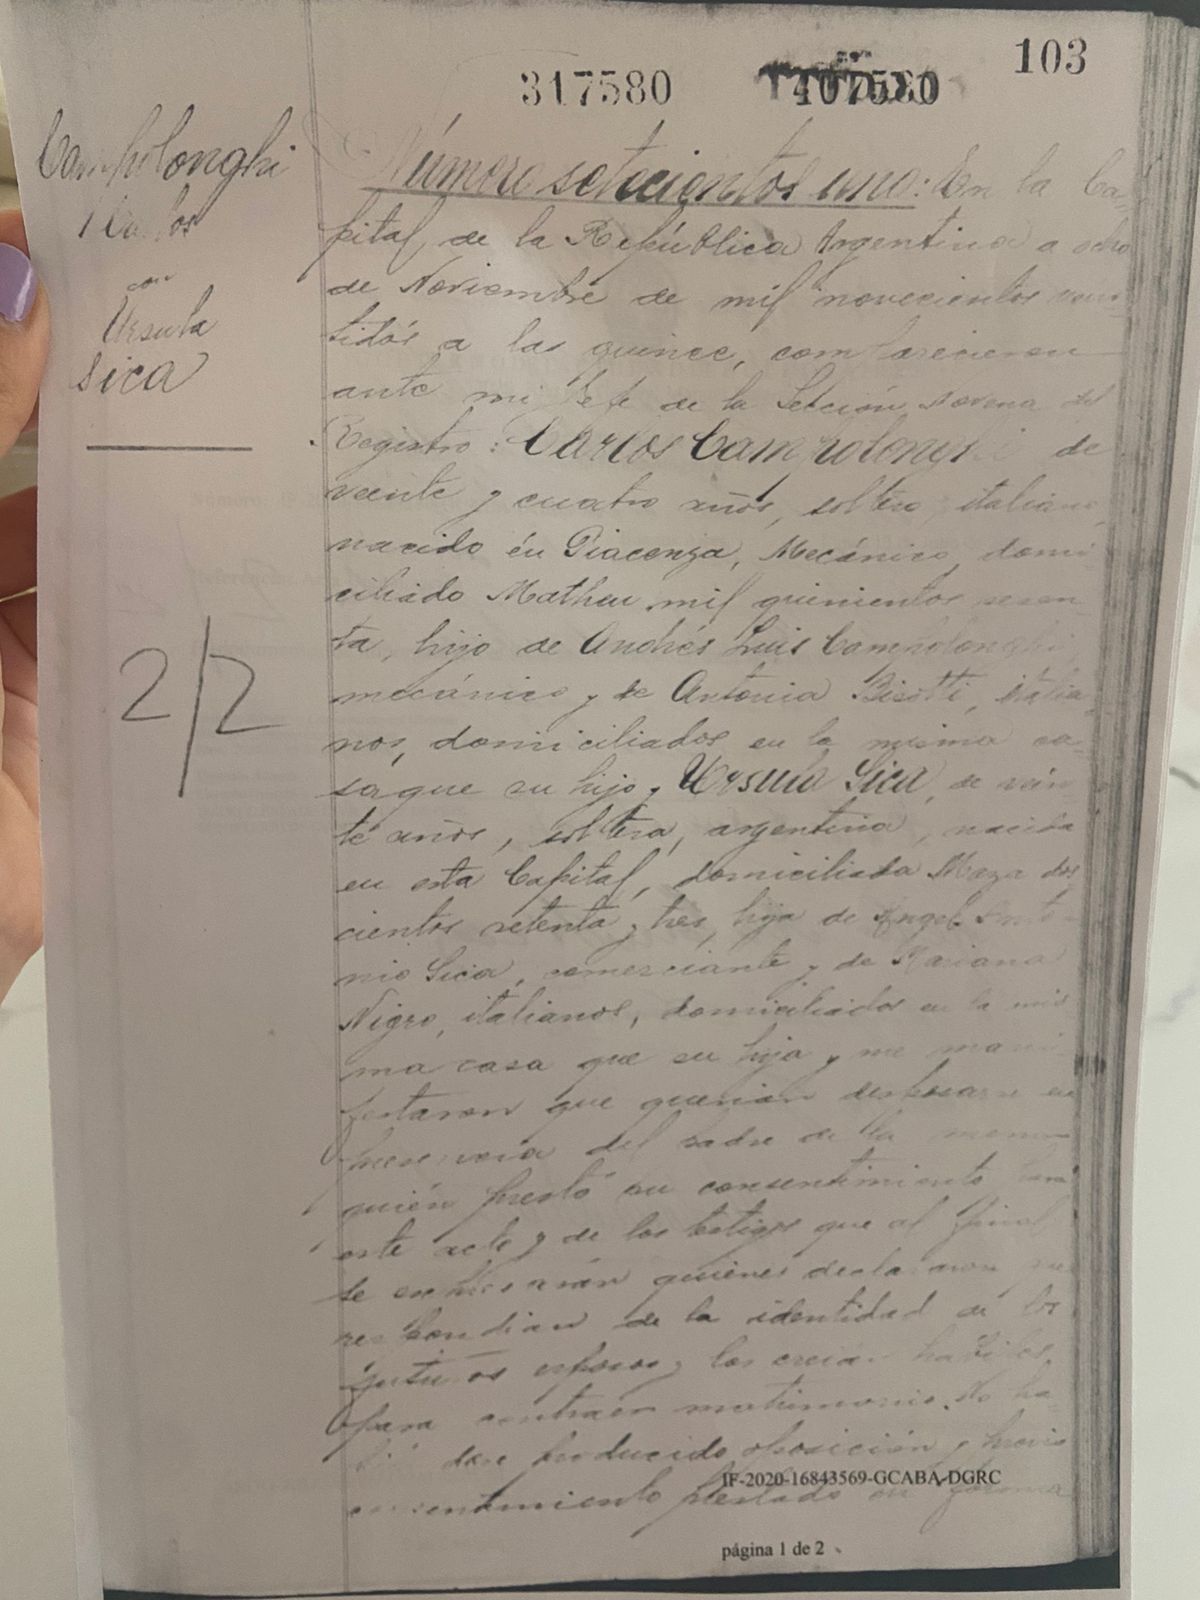 103
317580
Campolonghi
Carlos
con
Ursula
Sica
2/2
Número setecientos uno: En la Ca-
pital de la República Argentina a ocho
de Noviembre de mil novecientos vein-
tidós a las quince, comparecieron
ante mi Jefe de la Sección Novena del
Registro: Carlos Campolonghi de
veinte y cuatro años, soltero, italiano,
nacido en Piacenza, Mecánico, domi-
ciliado Matheu mil quinientos sesen-
ta, hijo de Andrés Luis Campolonghi,
mecánico y de Antonia Bisotti, italia-
nos, domiciliados en la misma ca-
sa que su hijo y Ursula Sica, de vein-
te años, soltera, argentina, nacida
en esta Capital, domiciliada Maza dos-
cientos setenta y tres, hija de Angel Anto-
nio Sica, comerciante y de Mariana
Nigro, italianos, domiciliados en la mis-
ma casa que su hija y me mani-
festaron que querian desposarse en
presencia del padre de la
quién prestó su consentimiento para
este acto y de los testigos que al final
se expresarán quiénes declararon que
respondian de la identidad de los
futuros esposos y los creian habiles
para contraer matrimonio. No ha-
producido oposición y previo
consentimiento prestado en forma
IF-2020-16843569-GCABA-DGRC
página 1 de 2